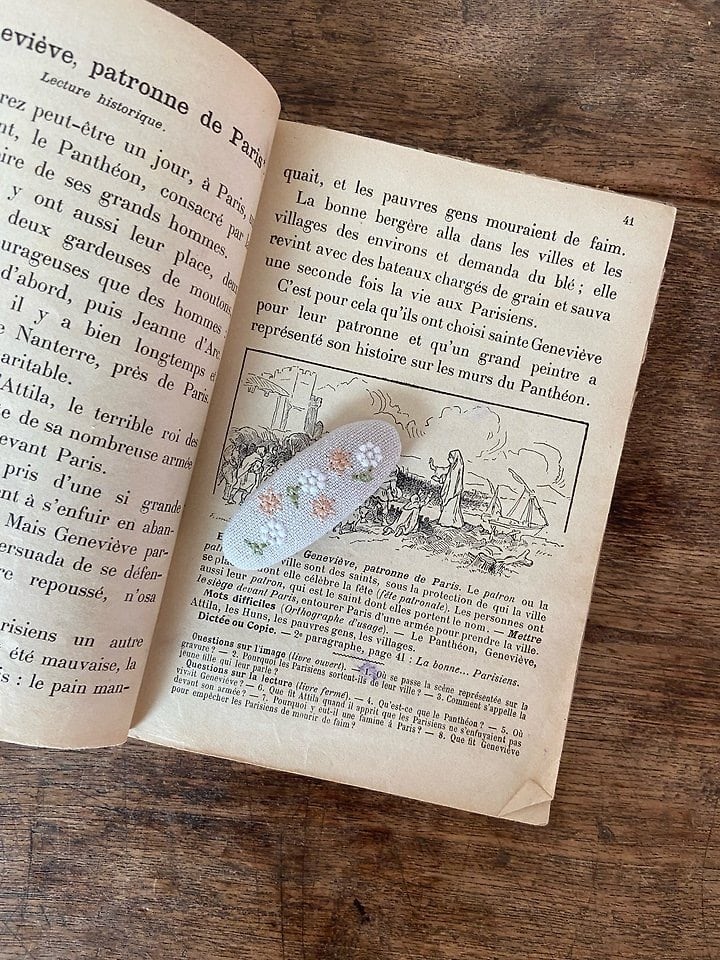 eviève, patronne de Paris
Lecture historique.
rez peut-être un jour, à Paris,
nt, le Panthéon, consacré par
ire de ses grands hommes.
y ont aussi leur place, deux
deux gardeuses de moutons
urageuses que des hommes :
d'abord, puis Jeanne d'Arc.
il y a bien longtemps
Nanterre, près de Paris.
aritable.
'Attila, le terrible roi des
e de sa nombreuse armée
evant Paris.
pris d'une si grande
nt à s'enfuir en aban-
Mais Geneviève par-
ersuada de se défen-
re repoussé, n'osa
risiens un autre
été mauvaise, la
is : le pain man-
41
quait, et les pauvres gens mouraient de faim.
La bonne bergère alla dans les villes et les
villages des environs et demanda du blé ; elle
revint avec des bateaux chargés de grain et sauva
une seconde fois la vie aux Parisiens.
C'est pour cela qu'ils ont choisi sainte Geneviève
pour leur patronne et qu'un grand peintre a
représenté son histoire sur les murs du Panthéon.
Geneviève, patronne de Paris. Le patron ou la
ville sont des saints, sous la protection de qui la ville
se plac dont elle célèbre la fête (fête patronale). Les personnes ont
aussi leur patron, qui est le saint dont elles portent le nom. — Mettre
le siège devant Paris, entourer Paris d'une armée pour prendre la ville.
Mots difficiles (Orthographe d'usage). — Le Panthéon, Geneviève,
Attila, les Huns, les pauvres gens, les villages.
Dictée ou Copie. — 2e paragraphe, page 41 : La bonne... Parisiens.
Questions sur l'image (livre ouvert). — 1. Où se passe la scène représentée sur la
gravure ? — 2. Pourquoi les Parisiens sortent-ils de leur ville ? — 3. Comment s'appelle la
jeune fille qui leur parle ?
Questions sur la lecture (livre fermé). — 4. Qu'est-ce que le Panthéon ? — 5. Où
vivait Geneviève ? — 6. Que fit Attila quand il apprit que les Parisiens ne s'enfuyaient pas
devant son armée ? — 7. Pourquoi y eut-il une famine à Paris ? — 8. Que fit Geneviève
pour empêcher les Parisiens de mourir de faim ?